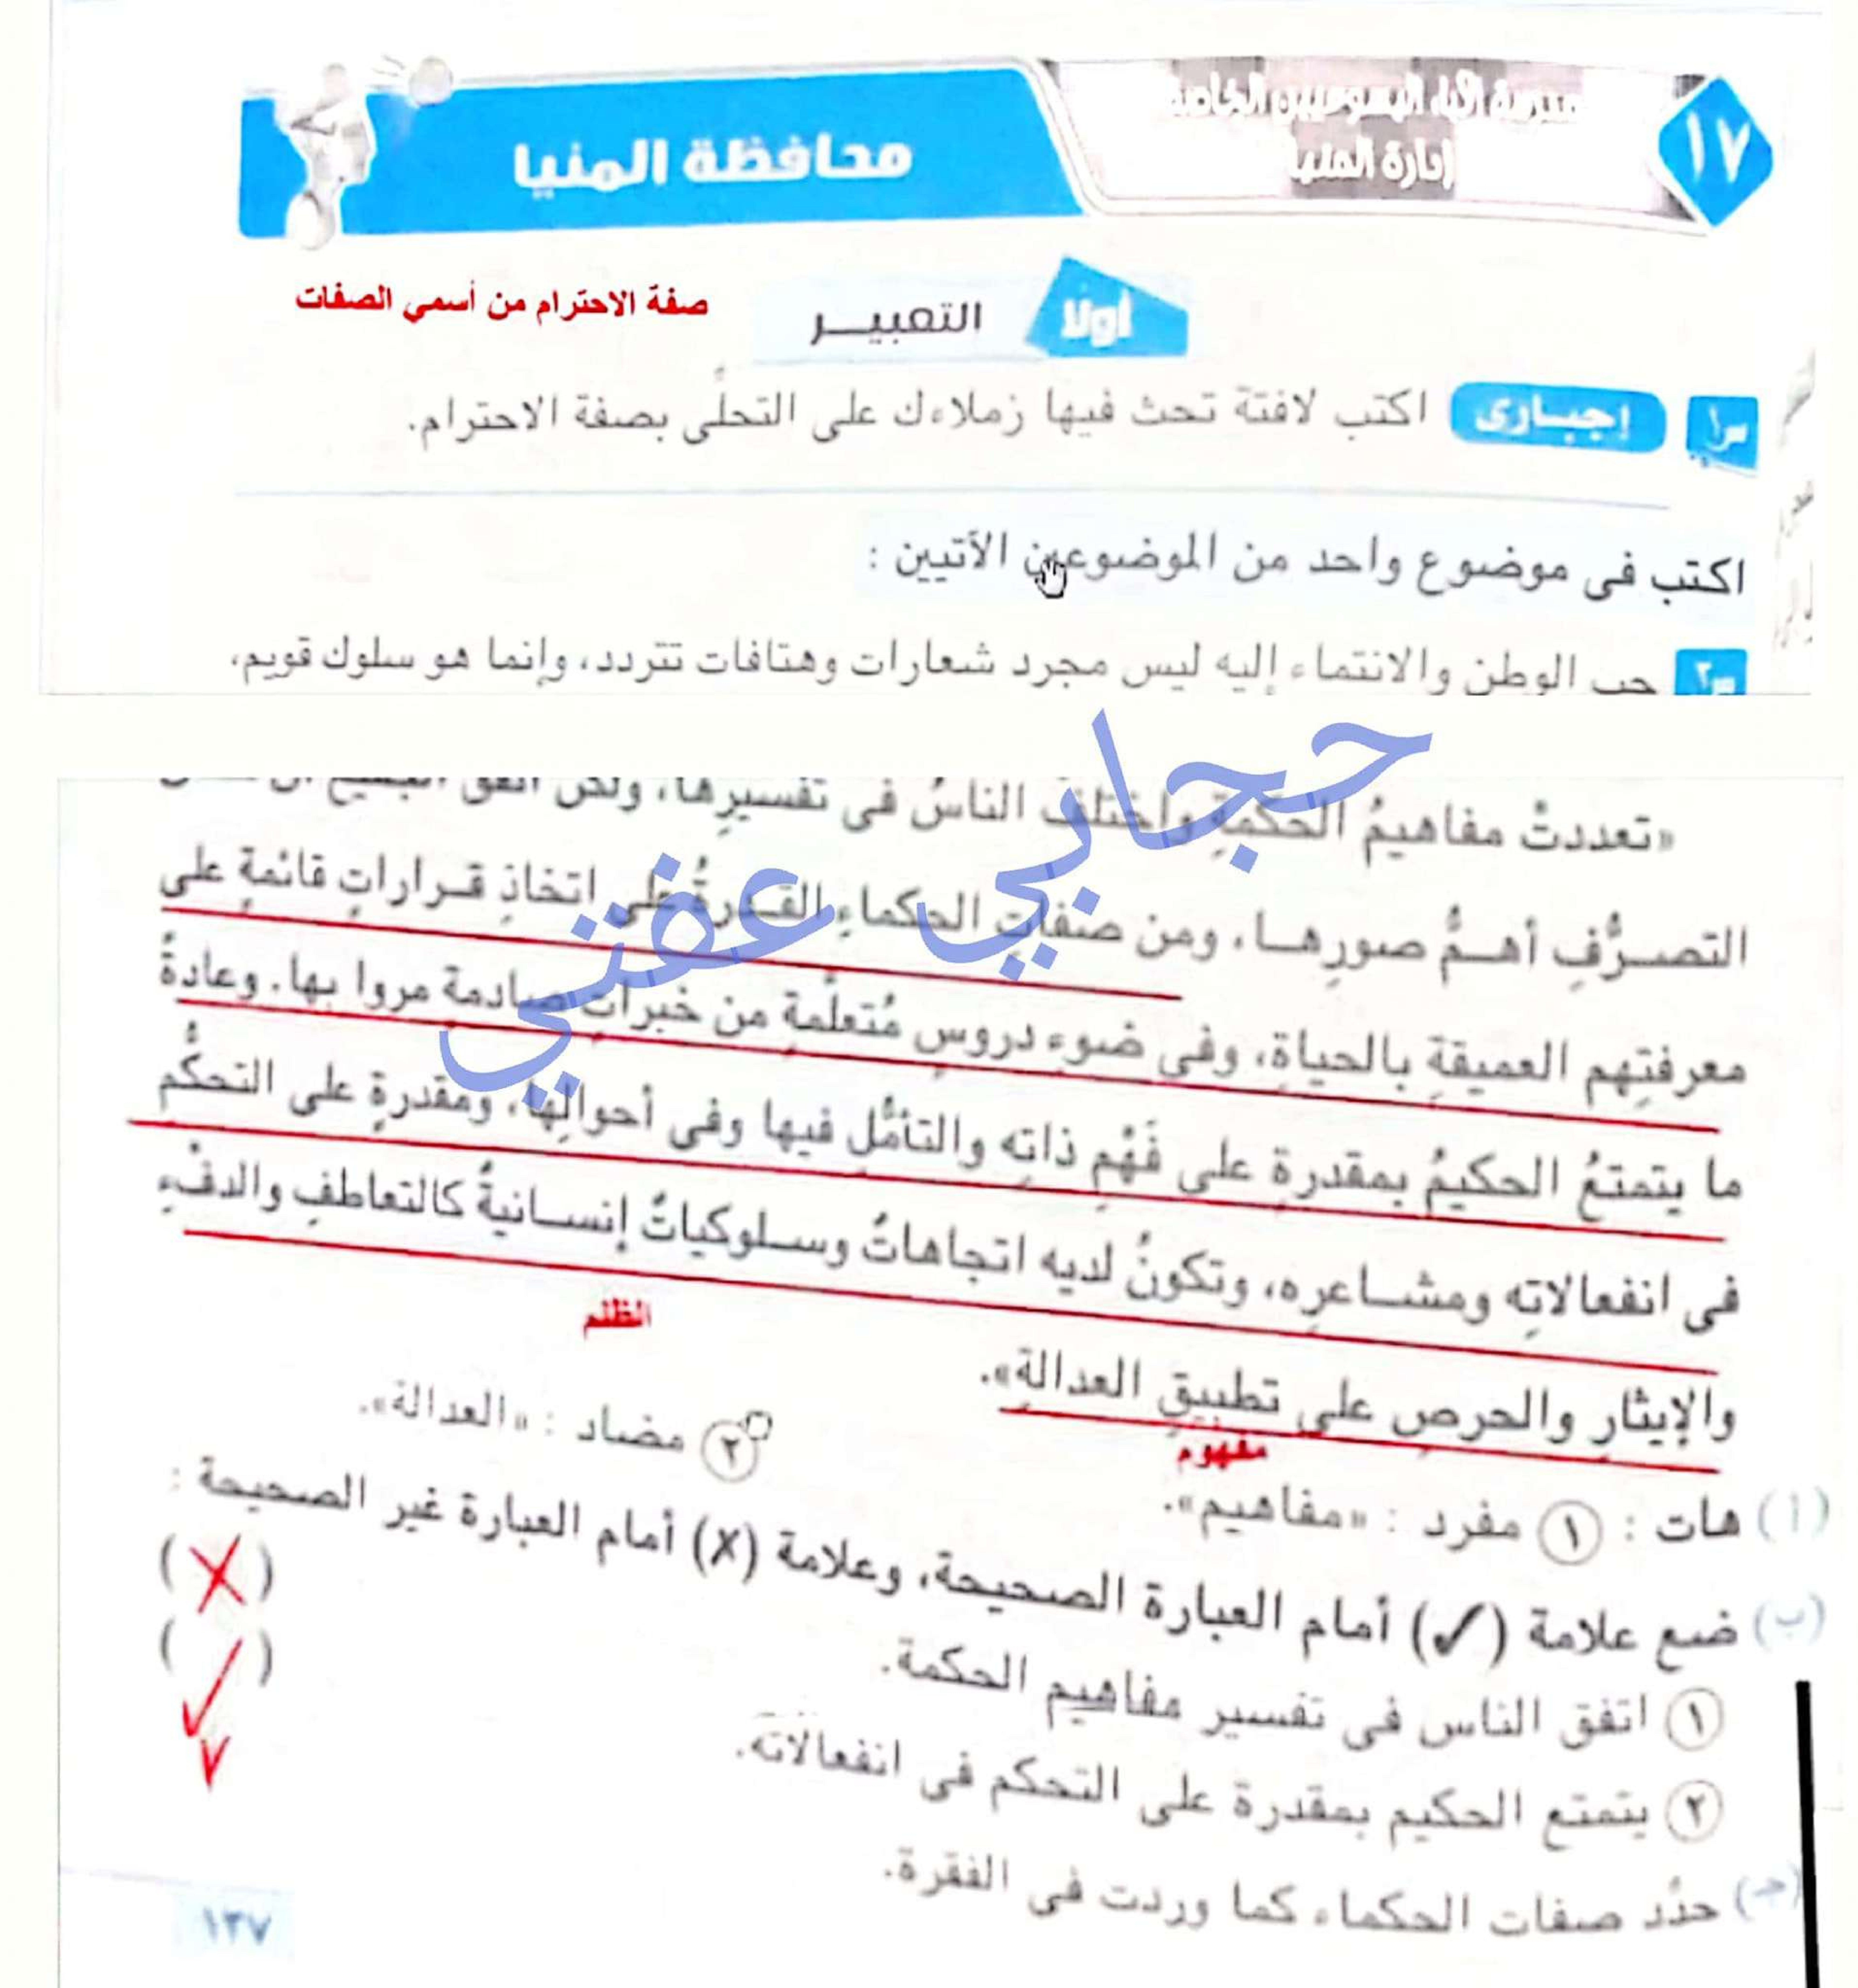 ١٧
إدارة المنيا
محافظة المنيا
أولًا
التعبيـــر
صفة الاحترام من أسمي الصفات
س١ إجبـارى اكتب لافتة تحث فيها زملاءك على التحلِّى بصفة الاحترام.
اكتب فى موضوع واحد من الموضوعين الآتيين :
س٢ حب الوطن والانتماء إليه ليس مجرد شعارات وهتافات تتردد، وإنما هو سلوك قويم،
حجابي عفتي
«تعددتْ مفاهيمُ الحكمةِ واختلفَ الناسُ فى تفسيرِها، ولكن اتفق
التصـرُّفِ أهـمُّ صورِهـا، ومن صفاتِ الحكماءِ القـدرةُ على اتخاذِ قـراراتٍ قائمةٍ على
معرفتِهم العميقةِ بالحياةِ، وفى ضوء دروسٍ مُتعلَّمةٍ من خبراتٍ صادمة مروا بها. وعادةً
ما يتمتعُ الحكيمُ بمقدرةٍ على فَهْمِ ذاتِه والتأمُّل فيها وفى أحوالِها، ومقدرةٍ على التحكُّم
فى انفعالاتِه ومشـاعرِه، وتكونُ لديه اتجاهاتٌ وسـلوكياتٌ إنسـانيةٌ كالتعاطفِ والدفْءِ
والإيثارِ والحرصِ على تطبيقِ العدالةِ».
(أ) هات : ١ مفرد : «مفاهيم». مفهوم
٢ مضاد : «العدالة». الظلم
(ب) ضع علامة (✓) أمام العبارة الصحيحة، وعلامة (X) أمام العبارة غير الصحيحة :
١ اتفق الناس فى تفسير مفاهيم الحكمة. (X)
٢ يتمتع الحكيم بمقدرة على التحكم فى انفعالاته. (✓)
(جـ) حدِّد صفات الحكماء كما وردت فى الفقرة.
١٣٧